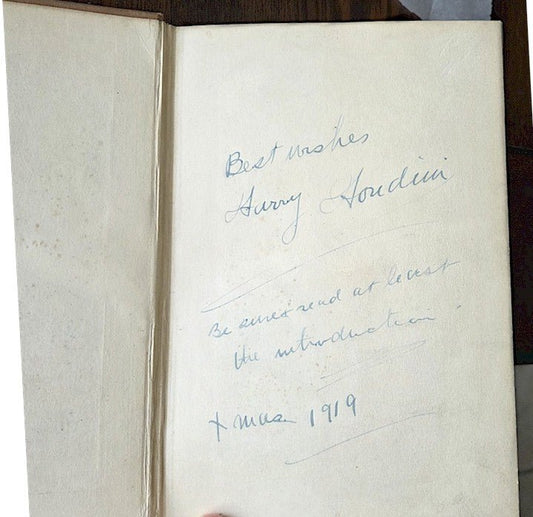 Best wishes
Harry Houdini
Be sure & read at least
the introduction
Xmas 1919